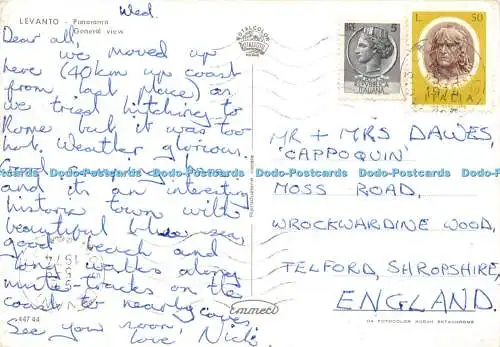 LEVANTO - Panorama
General view
Wed.
Dear all,
we moved up
here (40km up coast
from last place) as
we tried hitching to
Rome but it was too
hot. Weather glorious.
Good camping here
and it's an interesting
historic town with
beautiful blue sea,
good beach and
long walks along
mule-tracks on the
coast to nearby coves.
See you soon,
love, Nick.
44744
TOTALCOLOR
Emmeci
DA FOTOCOLOR KODAK EKTACHROME
5
REPUBBLICA
ITALIANA
L. 50
MR + MRS DAWES,
'CAPPOQUIN'
MOSS ROAD,
WROCKWARDINE WOOD,
TELFORD, SHROPSHIRE,
ENGLAND.
Dodo-Postcards Dodo-Postcards Dodo-Postcards Dodo-Postcards Dodo-Postcards